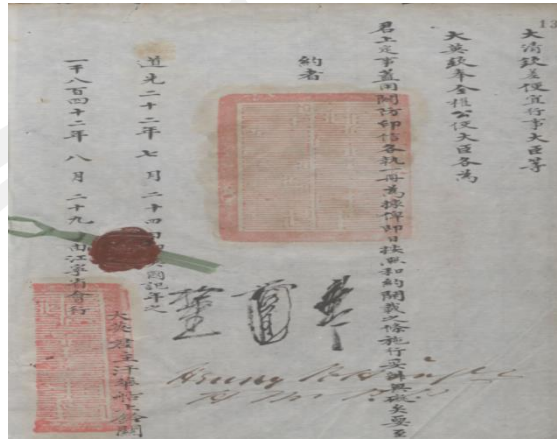 大清欽差便宜行事大臣等
大英欽奉全權公使大臣各為
君上定事蓋用關防印信各執一冊為據俾即日按照和約開載之條施行妥辦無礙矣要至
約者
道光二十二年七月二十四日即英國記年之
一千八百四十二年八月二十九日由江寧省會行
大英君主汗華船上鈐關